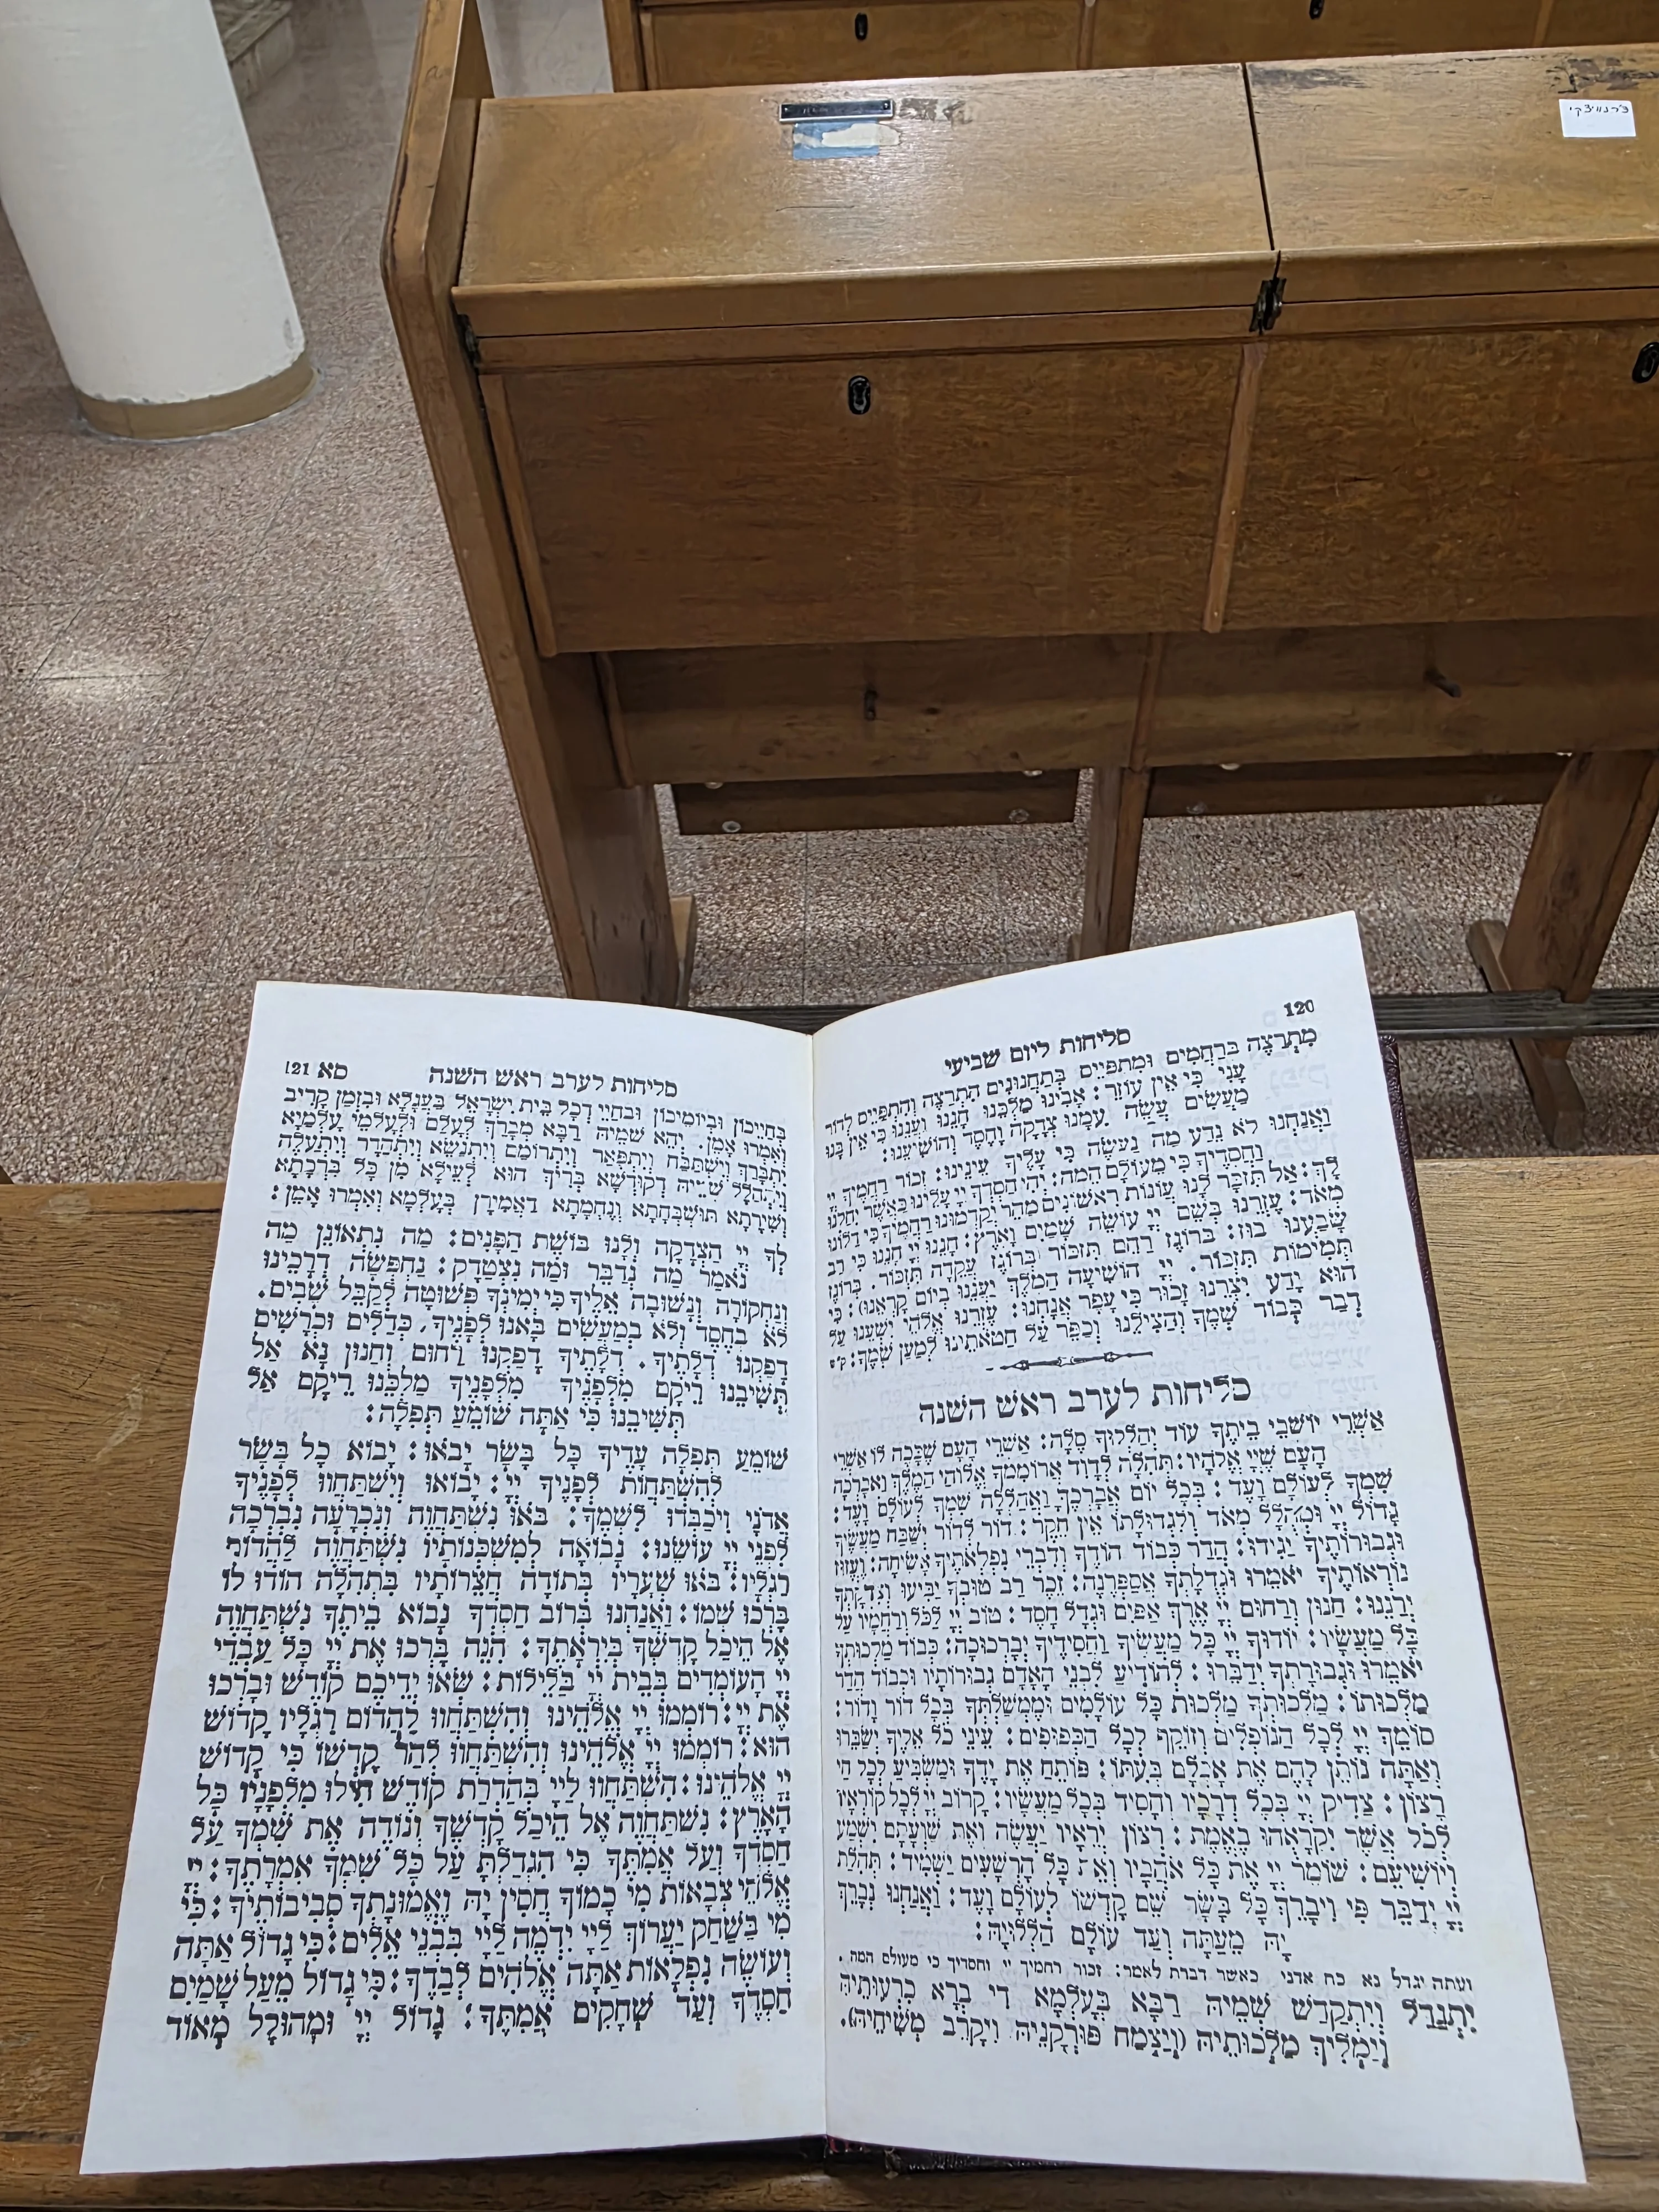 צ'רנוויצקי
120
סליחות ליום שביעי
מִתְרַצֶּה בְּרַחֲמִים וּמִתְפַּיֵּים בְּתַחֲנוּנִים הִתְרַצֶּה וְהִתְפַּיֵּים לְדוֹר
עָנִי כִּי אֵין עוֹזֵר: אָבִינוּ מַלְכֵּנוּ חָנֵּנוּ וַעֲנֵנוּ כִּי אֵין בָּנוּ
מַעֲשִׂים עֲשֵׂה עִמָּנוּ צְדָקָה וָחֶסֶד וְהוֹשִׁיעֵנוּ:
וַאֲנַחְנוּ לֹא נֵדַע מַה נַּעֲשֶׂה כִּי עָלֶיךָ עֵינֵינוּ: זְכוֹר רַחֲמֶיךָ יְיָ
וַחֲסָדֶיךָ כִּי מֵעוֹלָם הֵמָּה: יְהִי חַסְדְּךָ יְיָ עָלֵינוּ כַּאֲשֶׁר יִחַלְנוּ
לָךְ: אַל תִּזְכָּר לָנוּ עֲוֹנוֹת רִאשׁוֹנִים מַהֵר יְקַדְּמוּנוּ רַחֲמֶיךָ כִּי דַלּוֹנוּ
מְאֹד: עֶזְרֵנוּ בְּשֵׁם יְיָ עוֹשֵׂה שָׁמַיִם וָאָרֶץ: חָנֵּנוּ יְיָ חָנֵּנוּ כִּי רַב
שָׂבַעְנוּ בוּז: בְּרוֹגֶז רַחֵם תִּזְכּוֹר בְּרוֹגֶז עֲקֵדָה תִּזְכּוֹר. בְּרוֹגֶז
תְּמִימוּת תִּזְכּוֹר. יְיָ הוֹשִׁיעָה הַמֶּלֶךְ יַעֲנֵנוּ בְיוֹם קָרְאֵנוּ): כִּי
הוּא יָדַע יִצְרֵנוּ זָכוּר כִּי עָפָר אֲנָחְנוּ: עָזְרֵנוּ אֱלֹהֵי יִשְׁעֵנוּ עַל
דְּבַר כְּבוֹד שְׁמֶךָ וְהַצִּילֵנוּ וְכַפֵּר עַל חַטֹּאתֵינוּ לְמַעַן שְׁמֶךָ: ק"ש
סליחות לערב ראש השנה
אַשְׁרֵי יוֹשְׁבֵי בֵיתֶךָ עוֹד יְהַלְלוּךָ סֶּלָה: אַשְׁרֵי הָעָם שֶׁכָּכָה לּוֹ אַשְׁרֵי
הָעָם שֶׁיְיָ אֱלֹהָיו: תְּהִלָּה לְדָוִד אֲרוֹמִמְךָ אֱלוֹהַי הַמֶּלֶךְ וַאֲבָרְכָה
שִׁמְךָ לְעוֹלָם וָעֶד: בְּכָל יוֹם אֲבָרְכֶךָּ וַאֲהַלְלָה שִׁמְךָ לְעוֹלָם וָעֶד:
גָּדוֹל יְיָ וּמְהֻלָּל מְאֹד וְלִגְדוּלָּתוֹ אֵין חֵקֶר: דּוֹר לְדוֹר יְשַׁבַּח מַעֲשֶׂיךָ
וּגְבוּרוֹתֶיךָ יַגִּידוּ: הֲדַר כְּבוֹד הוֹדֶךָ וְדִבְרֵי נִפְלְאֹתֶיךָ אָשִׂיחָה: וֶעֱזוּז
נוֹרְאוֹתֶיךָ יֹאמֵרוּ וּגְדֻלָּתְךָ אֲסַפְּרֶנָּה: זֵכֶר רַב טוּבְךָ יַבִּיעוּ וְצִדְקָתְךָ
יְרַנֵּנוּ: חַנּוּן וְרַחוּם יְיָ אֶרֶךְ אַפַּיִם וּגְדָל חָסֶד: טוֹב יְיָ לַכֹּל וְרַחֲמָיו עַל
כָּל מַעֲשָׂיו: יוֹדוּךָ יְיָ כָּל מַעֲשֶׂיךָ וַחֲסִידֶיךָ יְבָרְכוּכָה: כְּבוֹד מַלְכוּתְךָ
יֹאמֵרוּ וּגְבוּרָתְךָ יְדַבֵּרוּ: לְהוֹדִיעַ לִבְנֵי הָאָדָם גְּבוּרוֹתָיו וּכְבוֹד הֲדַר
מַלְכוּתוֹ: מַלְכוּתְךָ מַלְכוּת כָּל עוֹלָמִים וּמֶמְשַׁלְתְּךָ בְּכָל דּוֹר וָדוֹר:
סוֹמֵךְ יְיָ לְכָל הַנּוֹפְלִים וְזוֹקֵף לְכָל הַכְּפוּפִים: עֵינֵי כֹל אֵלֶיךָ יְשַׂבֵּרוּ
וְאַתָּה נוֹתֵן לָהֶם אֶת אָכְלָם בְּעִתּוֹ: פּוֹתֵחַ אֶת יָדֶךָ וּמַשְׂבִּיעַ לְכָל חַי
רָצוֹן: צַדִּיק יְיָ בְּכָל דְּרָכָיו וְחָסִיד בְּכָל מַעֲשָׂיו: קָרוֹב יְיָ לְכָל קוֹרְאָיו
לְכֹל אֲשֶׁר יִקְרָאֻהוּ בֶאֱמֶת: רְצוֹן יְרֵאָיו יַעֲשֶׂה וְאֶת שַׁוְעָתָם יִשְׁמַע
וְיוֹשִׁיעֵם: שׁוֹמֵר יְיָ אֶת כָּל אֹהֲבָיו וְאֵת כָּל הָרְשָׁעִים יַשְׁמִיד: תְּהִלַּת
יְיָ יְדַבֶּר פִּי וִיבָרֵךְ כָּל בָּשָׂר שֵׁם קָדְשׁוֹ לְעוֹלָם וָעֶד: וַאֲנַחְנוּ נְבָרֵךְ
יָהּ מֵעַתָּה וְעַד עוֹלָם הַלְלוּיָהּ:
ועתה יגדל נא כח אדני כאשר דברת לאמר: זכור רחמיך יי וחסדיך כי מעולם המה.
יִתְגַּדַּל וְיִתְקַדַּשׁ שְׁמֵיהּ רַבָּא בְּעָלְמָא דִי בְרָא כִרְעוּתֵיהּ
וְיַמְלִיךְ מַלְכוּתֵיהּ (וְיַצְמַח פּוּרְקָנֵיהּ וִיקָרֵב מְשִׁיחֵיהּ).
סליחות לערב ראש השנה סא 121
בְּחַיֵּיכוֹן וּבְיוֹמֵיכוֹן וּבְחַיֵּי דְכָל בֵּית יִשְׂרָאֵל בַּעֲגָלָא וּבִזְמַן קָרִיב
וְאִמְרוּ אָמֵן. יְהֵא שְׁמֵיהּ רַבָּא מְבָרַךְ לְעָלַם וּלְעָלְמֵי עָלְמַיָּא
יִתְבָּרַךְ וְיִשְׁתַּבַּח וְיִתְפָּאַר וְיִתְרוֹמַם וְיִתְנַשֵּׂא וְיִתְהַדָּר וְיִתְעַלֶּה
וְיִתְהַלָּל שְׁמֵיהּ דְּקוּדְשָׁא בְּרִיךְ הוּא לְעֵילָּא מִן כָּל בִּרְכָתָא
וְשִׁירָתָא תּוּשְׁבְּחָתָא וְנֶחֱמָתָא דַּאֲמִירָן בְּעָלְמָא וְאִמְרוּ אָמֵן:
לְךָ יְיָ הַצְּדָקָה וְלָנוּ בּוֹשֶׁת הַפָּנִים: מַה נִּתְאוֹנֵן מַה
נֹּאמַר מַה נְּדַבֵּר וּמַה נִּצְטַדָּק: נַחְפְּשָׂה דְרָכֵינוּ
וְנַחְקוֹרָה וְנָשׁוּבָה אֵלֶיךָ כִּי יְמִינְךָ פְּשׁוּטָה לְקַבֵּל שָׁבִים.
לֹא בְחֶסֶד וְלֹא בְמַעֲשִׂים בָּאנוּ לְפָנֶיךָ, כְּדַלִּים וּכְרָשִׁים
דָּפַקְנוּ דְלָתֶיךָ. דְּלָתֶיךָ דָפַקְנוּ רַחוּם וְחַנּוּן נָא אַל
תְּשִׁיבֵנוּ רֵיקָם מִלְּפָנֶיךָ מִלְּפָנֶיךָ מַלְכֵּנוּ רֵיקָם אַל
תְּשִׁיבֵנוּ כִּי אַתָּה שׁוֹמֵעַ תְּפִלָּה:
שׁוֹמֵעַ תְּפִלָּה עָדֶיךָ כָּל בָּשָׂר יָבֹאוּ: יָבוֹא כָל בָּשָׂר
לְהִשְׁתַּחֲוֹת לְפָנֶיךָ יְיָ: יָבוֹאוּ וְיִשְׁתַּחֲווּ לְפָנֶיךָ
אֲדֹנָי וִיכַבְּדוּ לִשְׁמֶךָ: בֹּאוּ נִשְׁתַּחֲוֶה וְנִכְרָעָה נִבְרְכָה
לִפְנֵי יְיָ עוֹשֵׂנוּ: נָבוֹאָה לְמִשְׁכְּנוֹתָיו נִשְׁתַּחֲוֶה לַהֲדוֹם
רַגְלָיו: בֹּאוּ שְׁעָרָיו בְּתוֹדָה חֲצֵרוֹתָיו בִּתְהִלָּה הוֹדוּ לוֹ
בָּרְכוּ שְׁמוֹ: וַאֲנַחְנוּ בְּרוֹב חַסְדְּךָ נָבוֹא בֵיתֶךָ נִשְׁתַּחֲוֶה
אֶל הֵיכַל קָדְשְׁךָ בְּיִרְאָתֶךָ: הִנֵּה בָּרְכוּ אֶת יְיָ כָּל עַבְדֵי
יְיָ הָעוֹמְדִים בְּבֵית יְיָ בַּלֵּילוֹת: שְׂאוּ יְדֵיכֶם קוֹדֶשׁ וּבָרְכוּ
אֶת יְיָ: רוֹמְמוּ יְיָ אֱלֹהֵינוּ וְהִשְׁתַּחֲווּ לַהֲדוֹם רַגְלָיו קָדוֹשׁ
הוּא: רוֹמְמוּ יְיָ אֱלֹהֵינוּ וְהִשְׁתַּחֲווּ לְהַר קָדְשׁוֹ כִּי קָדוֹשׁ
יְיָ אֱלֹהֵינוּ: הִשְׁתַּחֲווּ לַיְיָ בְּהַדְרַת קוֹדֶשׁ חִילוּ מִלְּפָנָיו כָּל
הָאָרֶץ: נִשְׁתַּחֲוֶה אֶל הֵיכַל קָדְשְׁךָ וְנוֹדֶה אֶת שְׁמֶךָ עַל
חַסְדְּךָ וְעַל אֲמִתֶּךָ כִּי הִגְדַּלְתָּ עַל כָּל שִׁמְךָ אִמְרָתֶךָ: יְיָ
אֱלֹהֵי צְבָאוֹת מִי כָמוֹךָ חֲסִין יָהּ וֶאֱמוּנָתְךָ סְבִיבוֹתֶיךָ: כִּי
מִי בַשַּׁחַק יַעֲרוֹךְ לַיְיָ יִדְמֶה לַיְיָ בִּבְנֵי אֵלִים: כִּי גָדוֹל אַתָּה
וְעוֹשֵׂה נִפְלָאוֹת אַתָּה אֱלֹהִים לְבַדֶּךָ: כִּי גָדוֹל מֵעַל שָׁמַיִם
חַסְדֶּךָ וְעַד שְׁחָקִים אֲמִתֶּךָ: גָּדוֹל יְיָ וּמְהוּלָּל מְאוֹד